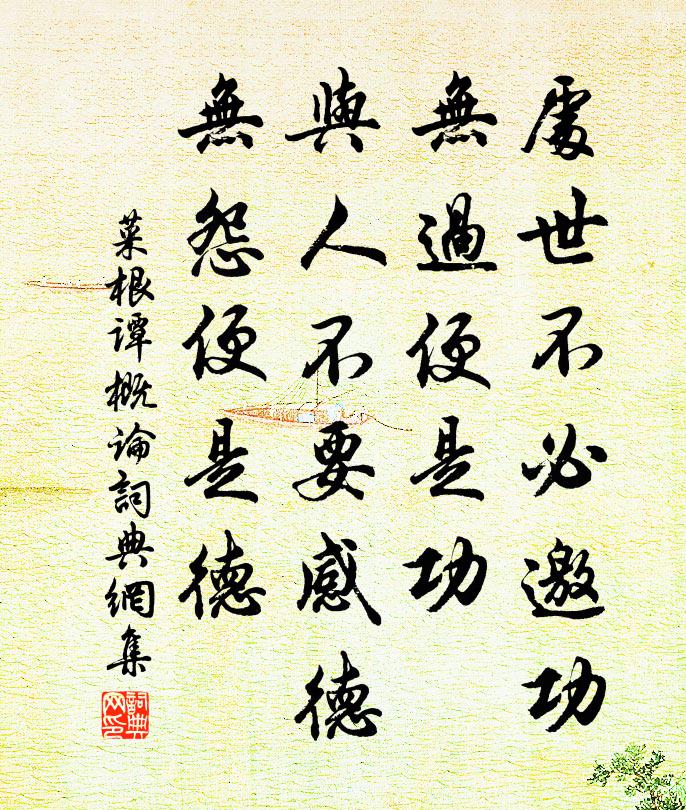 處世不必邀功
無過便是功
與人不要感德
無怨便是德
菜根譚概論詞典網集
詞典
网印